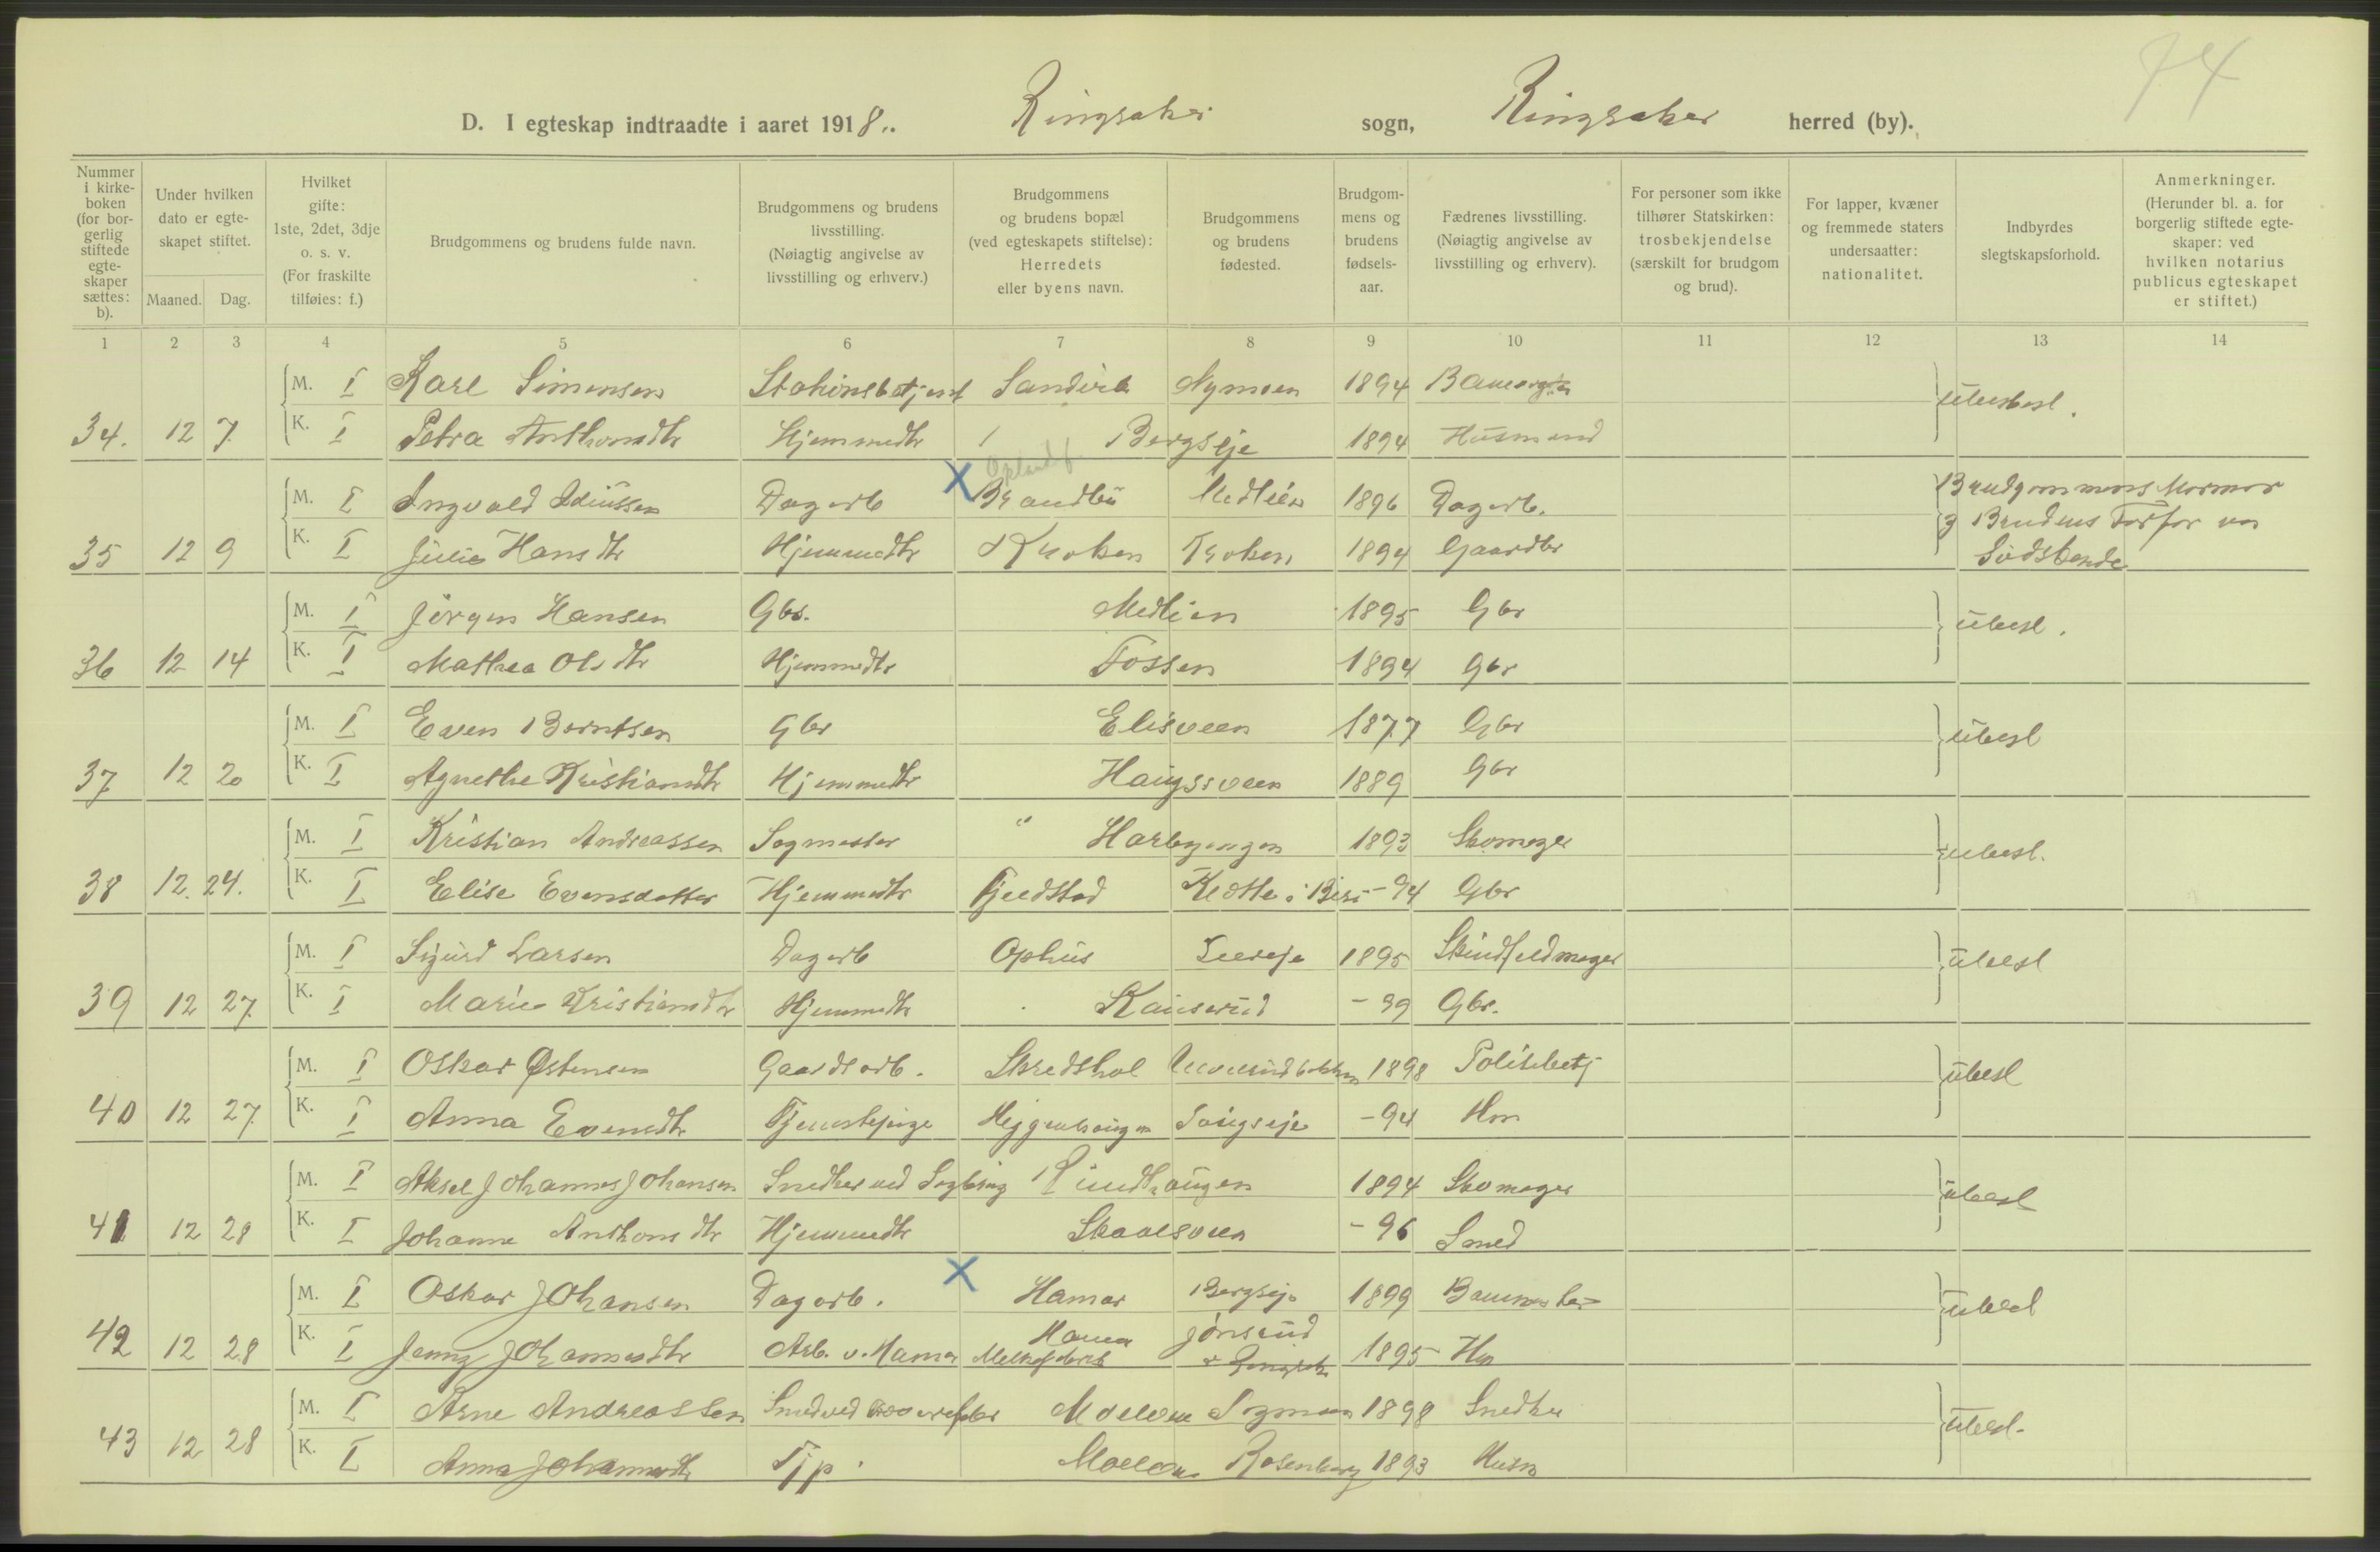 74
D. I egteskap indtraadte i aaret 1918. Ringsaker sogn, Ringsaker herred (by).
Nummer i kirke- boken (for bor- gerlig stiftede egte- skaper sættes: b).
Under hvilken dato er egte- skapet stiftet.
Maaned. Dag.
Hvilket gifte: 1ste, 2det, 3dje o. s. v. (For fraskilte tilføies: f.)
Brudgommens og brudens fulde navn.
Brudgommens og brudens livsstilling. (Nøiagtig angivelse av livsstilling og erhverv.)
Brudgommens og brudens bopæl (ved egteskapets stiftelse): Herredets eller byens navn.
Brudgommens og brudens fødested.
Brudgom- mens og brudens fødsels- aar.
Fædrenes livsstilling. (Nøiagtig angivelse av livsstilling og erhverv).
For personer som ikke tilhører Statskirken: trosbekjendelse (særskilt for brudgom og brud).
For lapper, kvæner og fremmede staters undersaatter: nationalitet.
Indbyrdes slegtskapsforhold.
Anmerkninger. (Herunder bl. a. for borgerlig stiftede egte- skaper: ved hvilken notarius publicus egteskapet er stiftet.)
1 2 3 4 5 6 7 8 9 10 11 12 13 14
M. I Karl Simensen Stationsbetjent Nymoen 1894
34. 12 7. K. I Petra Anthonsdtr Hjemmedtr Bergseje 1894 Husmand
M. I Ingvald Dagarb Brandbu Medlien 1896 Dagarb. Brudgommens Mormor
35 12 9 K. I Julie Hansdtr Hjemmedtr Kroken Kroken 1894 Gaardbr g Brudens Farfar var
Sødskende
M. I Jørgen Hansen Gbr. Medlien 1895 Gbr ubesl.
36 12 14 K. I Mathea Olsdtr Hjemmedtr Fossen 1894 Gbr
M. I Even Berntsen Gbr Elisveen 1877 Gbr ubesl
37 12 20 K. I Agnethe Kristiansdtr Hjemmedtr Haugsveen 1889 Gbr
M. I Kristian Andreassen Sagmester " 1893 Skomager ubesl.
38 12. 24. K. I Elise Evensdatter Hjemmedtr i Biri -94 Gbr
M. I Sigurd Larsen Dagarb Ophus 1895 Skindfeldmager ubesl
39 12 27. K. I Marie Kristiansdtr Hjemmedtr Kauserud -99 Gbr.
M. I Oskar Østensen Gaardsarb. Skredshol 1898 Politibetj ubesl
40 12 27. K. I Anna Evensdtr Tjenestepige -94 Hm
M. I Aksel Johannes Johansen Snedker ved Sagbrug 1894 Skomager ubesl
41 12 28 K. I Johanne Anthonsdtr Hjemmedtr -96 Smed
M. I Oskar Johansen Dagarb. Hamar Bergseje 1899 ubesl
42 12 28 K. I Jenny Johannesdtr Arb. v. Hamar Hamar Jønsrud 1895 Hm
M. I Arne Andreassen Smed ved Moelven 1898 Snedker ubesl.
43 12 28 K. I Anna Johannesdtr Tjp. Moelven Rosenberg 1893 Husm